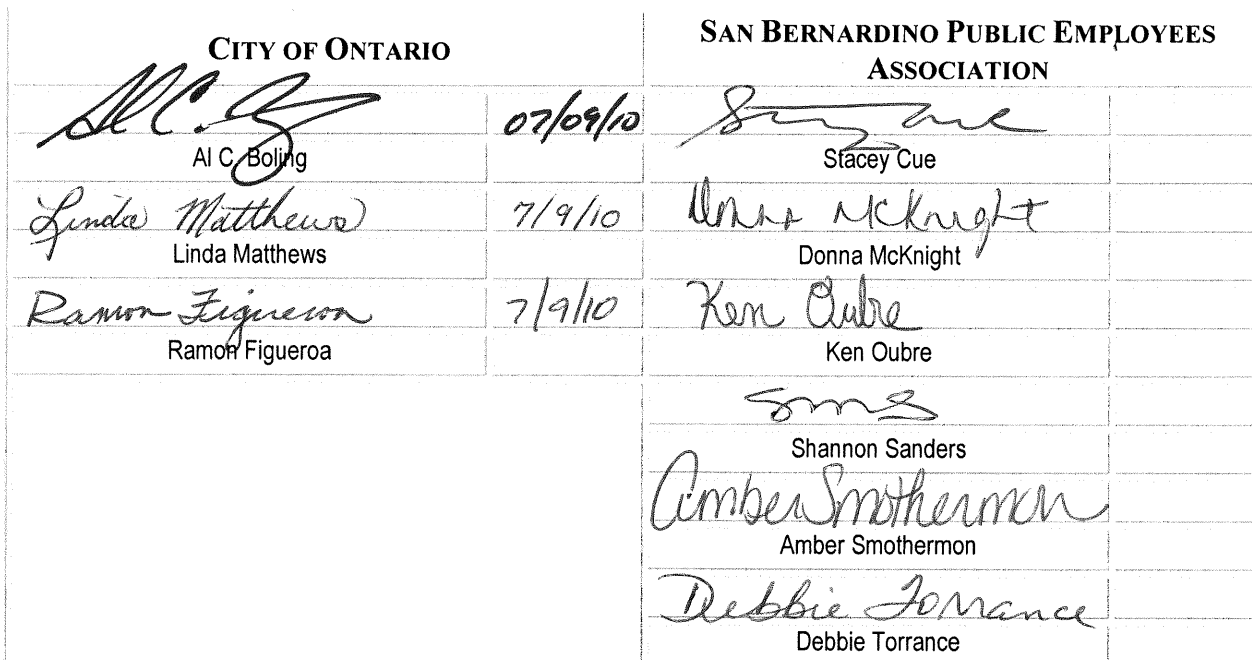 CITY OF ONTARIO
Al C. B
07/09/10
Al C. Boling
Linda Matthews
7/9/10
Linda Matthews
Ramon Figueroa
7/9/10
Ramon Figueroa
SAN BERNARDINO PUBLIC EMPLOYEES
ASSOCIATION
Stacey Cue
Stacey Cue
Donna McKnight
Donna McKnight
Ken Oubre
Ken Oubre
Shannon Sanders
Amber Smothermon
Amber Smothermon
Debbie Torrance
Debbie Torrance